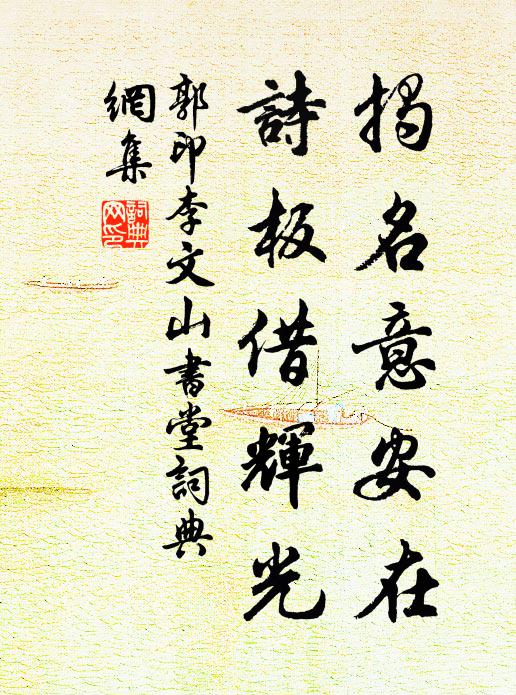 揭名意安在
詩板借輝光
郭印李文山書堂詞典
網集
詞典
网印